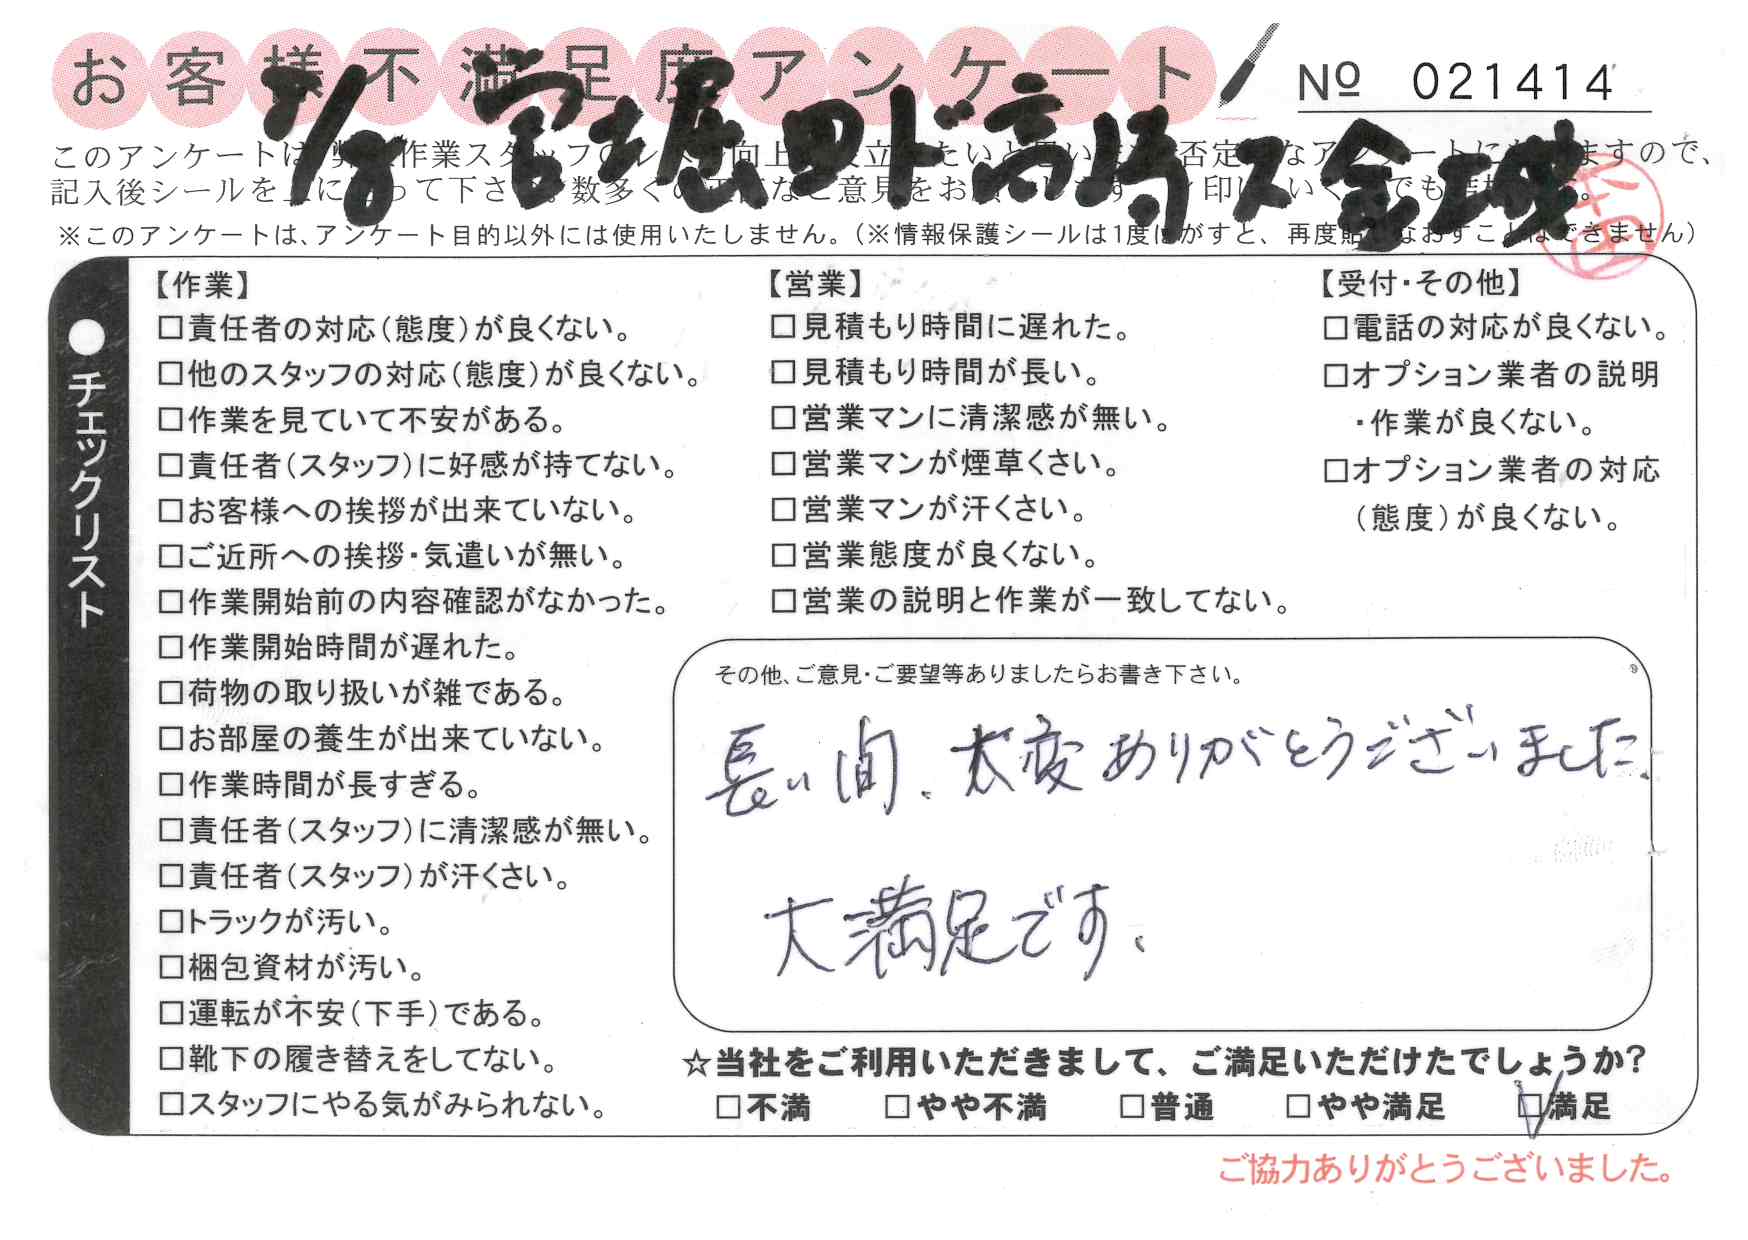 お客様不満足度アンケート
Nº 021414
このアンケートは 作業スタッフの 向上 立 たいと思い 否定 なアンケートに ますので、
記入後シールを上に って下さい。数多くの なご意見をお 印 いくつでも
※このアンケートは、アンケート目的以外には使用いたしません。（※情報保護シールは1度はがすと、再度貼りなおすことはできません）
●チェックリスト
【作業】
□責任者の対応（態度）が良くない。
□他のスタッフの対応（態度）が良くない。
□作業を見ていて不安がある。
□責任者（スタッフ）に好感が持てない。
□お客様への挨拶が出来ていない。
□ご近所への挨拶・気遣いが無い。
□作業開始前の内容確認がなかった。
□作業開始時間が遅れた。
□荷物の取り扱いが雑である。
□お部屋の養生が出来ていない。
□作業時間が長すぎる。
□責任者（スタッフ）に清潔感が無い。
□責任者（スタッフ）が汗くさい。
□トラックが汚い。
□梱包資材が汚い。
□運転が不安（下手）である。
□靴下の履き替えをしてない。
□スタッフにやる気がみられない。
【営業】
□見積もり時間に遅れた。
□見積もり時間が長い。
□営業マンに清潔感が無い。
□営業マンが煙草くさい。
□営業マンが汗くさい。
□営業態度が良くない。
□営業の説明と作業が一致してない。
【受付・その他】
□電話の対応が良くない。
□オプション業者の説明
・作業が良くない。
□オプション業者の対応
（態度）が良くない。
その他、ご意見・ご要望等ありましたらお書き下さい。
長い間、大変ありがとうございました。
大満足です、
☆当社をご利用いただきまして、ご満足いただけたでしょうか?
□不満 □やや不満 □普通 □やや満足 ☑満足
ご協力ありがとうございました。